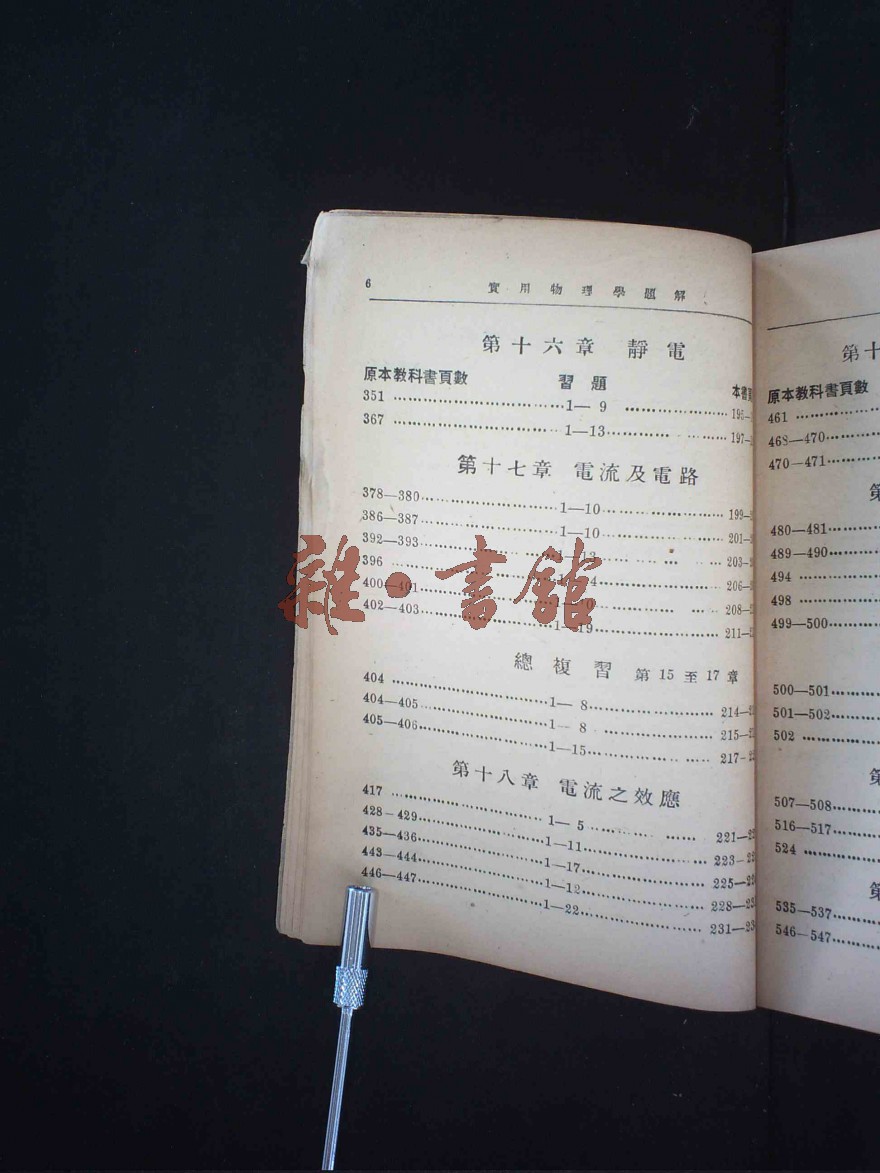 6 實用物理學題解
第十六章 靜電
原本教科書頁數 習題 本書頁
351 1—9 195—
367 1—13 197—
第十七章 電流及電路
378—380 1—10 199—
386—387 1—10 201—
392—393 1—13 203—
396 206—
400—401 208—
402—403 1—19 211—
總複習 第15至17章
404 1—8 214—
404—405 1—8 215—
405—406 1—15 217—
第十八章 電流之效應
417 1—5 221—
428—429 1—11 223—
435—436 1—17 225—
443—444 1—12 228—
446—447 1—22 231—
雜·書館
第十
原本教科書頁數
461
468—470
470—471
第
480—481
489—490
494
498
499—500
500—501
501—502
502
第
507—508
516—517
524
第
535—537
546—547